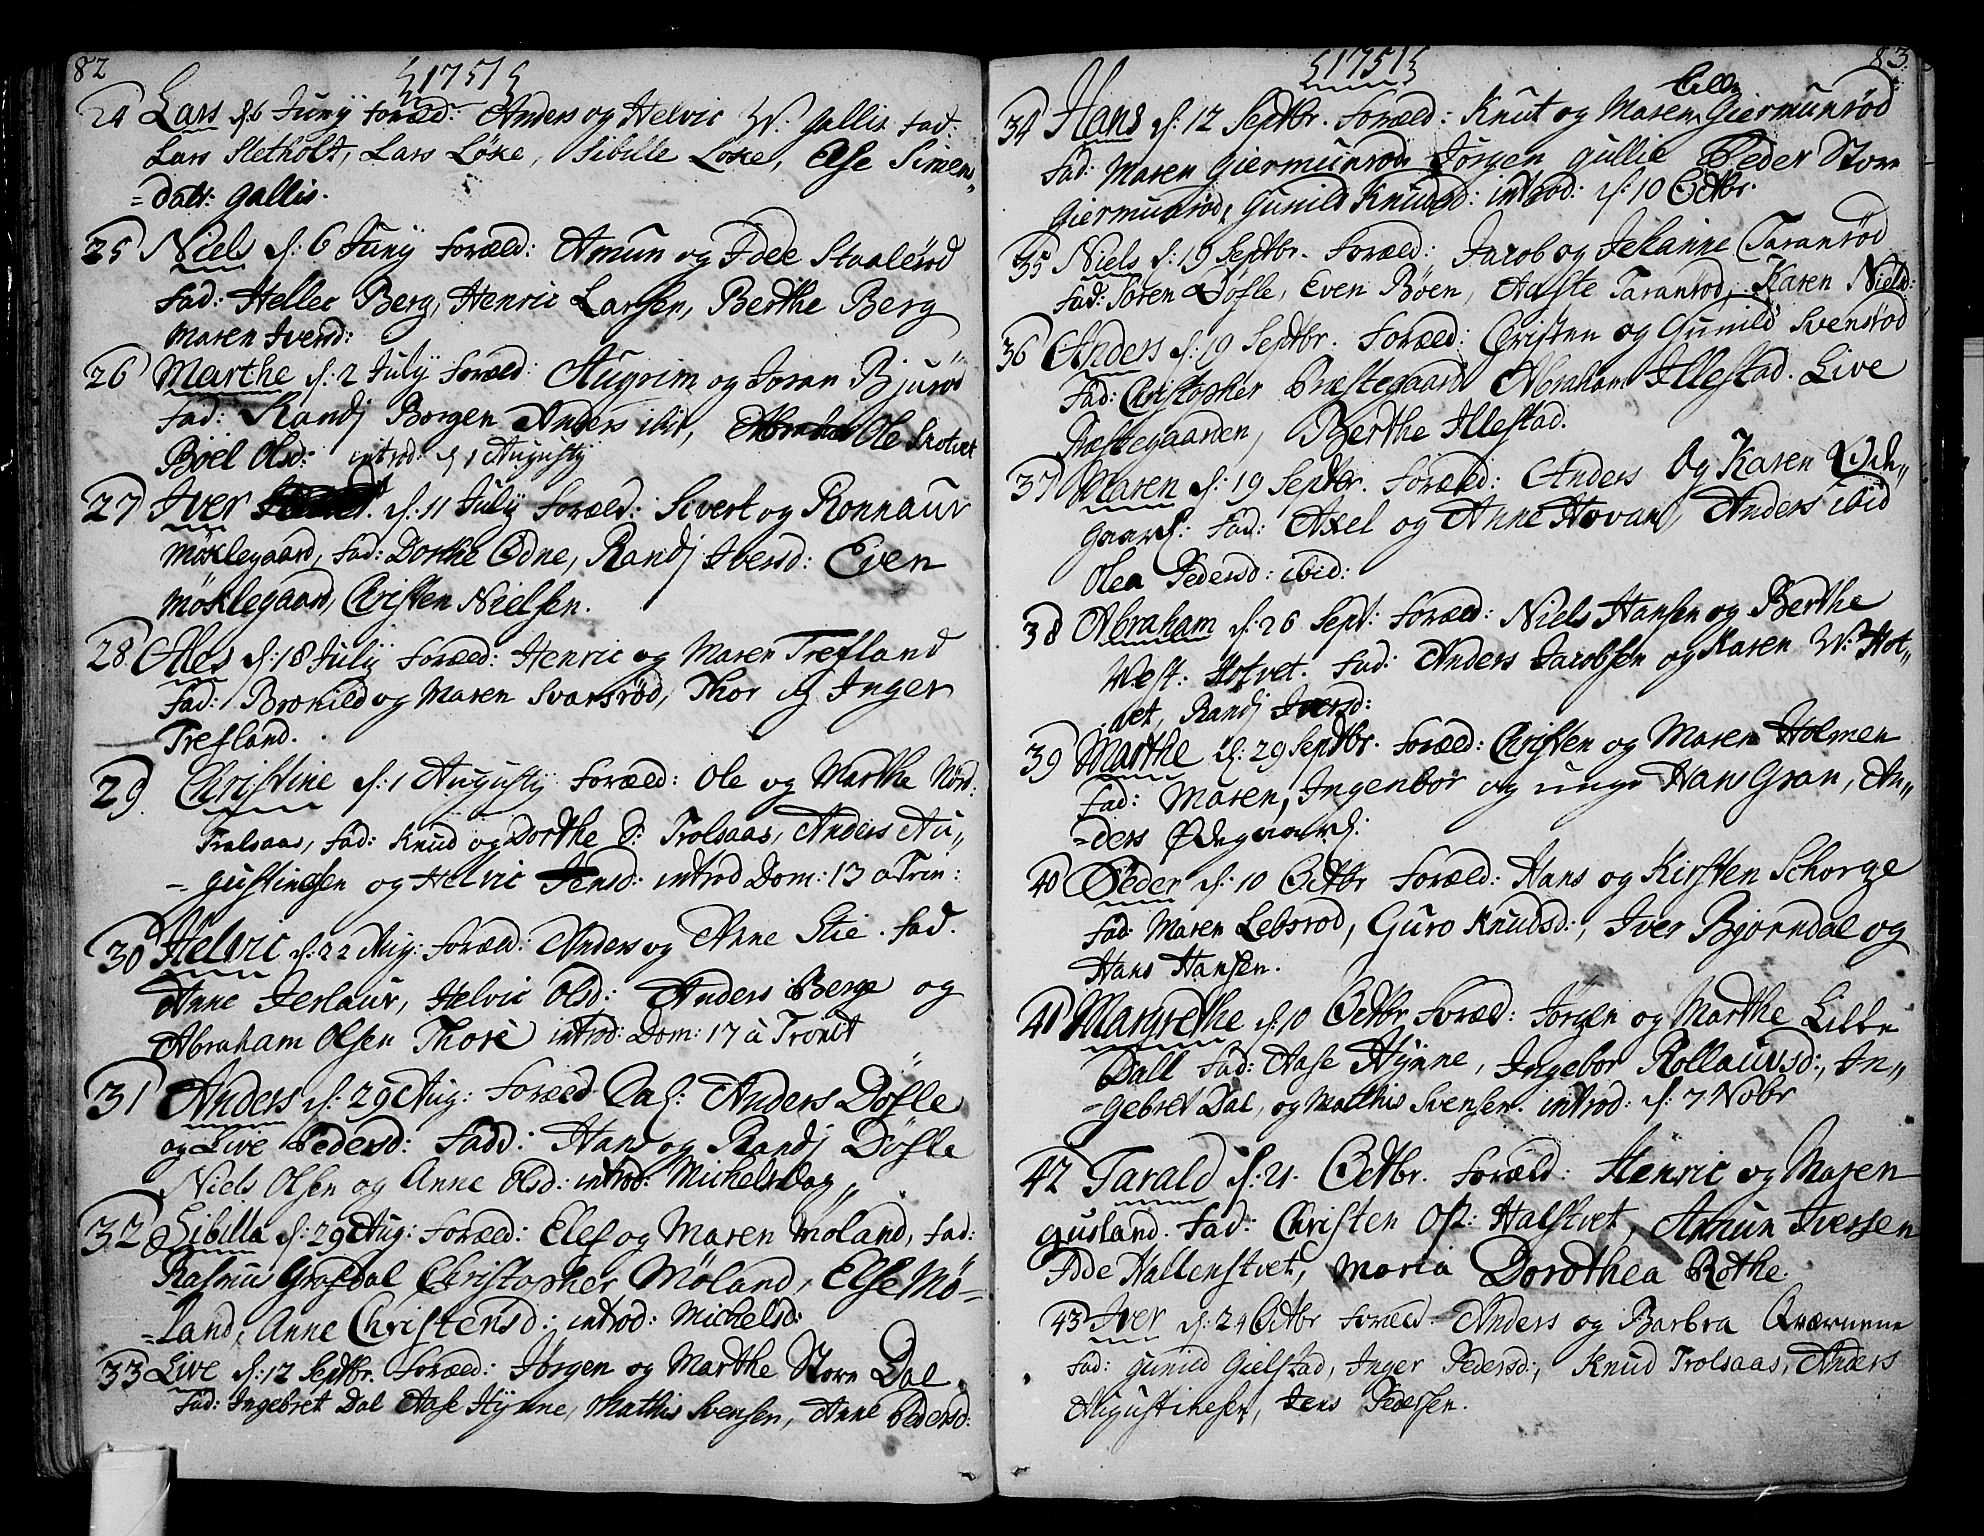 82
1751
24 Lars d: 6 Junij foræld: Anders og Helvic W: Gallis fad:
Lars Sletholt, Lars Løke, Sibille Løke, Else Simens
=datt: Gallis.
25 Niels d: 6 Junij foræld: Amun og Idee Staalerød
fad: Hellec Berg, Henric Larsen, Berthe Berg
Maren Iversd:
26 Marthe d: 2 Julij foræld: Augrim og Joran Bjurød
fad: Randj Borgen Anders ibid, Ole Skotvet
Böel Olsd: introd: d 1 Augustij
27 Iver d: 11 Julij foræld: Sivert og Ronnaur
Möklegaard, fad: Dorthe Odne, Randj Iversd: Even
Möklegaard, Christen Nielsen.
28 Alles d: 18 Julij foræld: Henric og Maren Trefland
fad: Brokild og Maren Svarsrød, Thor og Inger
Trefland.
29 Christine d: 1 Augustij foræld: Ole og Marthe Nörd:
Trolsaas, fad: Knud og Dorthe S: Trolsaas, Anders Au„
-gustinesen og Helvic Jensd: introd Dom: 13 a Trin:
30 Helvic d: 22 Aug: foræld: Anders og Anne Stie. fad.
Anne Jerlaur, Helvic Olsd: Anders Berge og
Abraham Olsen Thore introd: Dom: 17 a Trinit
31 Anders d: 29 Aug: foræld Anders Döfle
og Live Pedersd: fadd: Hans og Randj Döfle
Niels Olsen og Anne Olsd: introd: Michelsdag„
32 Sibilla d: 29 Aug: foræld: Elef og Maren Möland, fad:
Rasmus Grosdal Christopher Möland, Else Mö=
=land, Anne Christensd: introd: Michelsd:
33 Live d: 12 Septbr. foræld: Jørgen og Marthe Store Dal
fad: Ingebret Dal Aase Hynne, Mathis Svensen, Anne Pedersd:
83.
1751
Lille
34 Hans d: 12 Septbr. foræld: Knut og Maren Giermunrød
fad: Maren Giermunrød, Jørgen Gullie Peder Store
Giermunrød, Gunild Knudsd: introd: d: 10 Octbr.
35 Niels d: 19 Septbr. foræld: Jacob og Johanne Taranrød
fad: Søren Döfle, Even Böen, Aaste Taranrød, Karen Nielsd:
36 Anders d: 19 Septbr. foræld: Christen og Gunild Svensrød
fad: Christopher Præstegaard Abraham Illestad. Live
Præstegaarden, Berthe Illestad.
37 Maren d: 19 Septbr. foræld: Anders og Karen Öde„
gaard: fad: Axel og Anne Hovan, Anders ibid
Olea Pedersd: ibid:
38 Abraham d: 26 Sept: foræld: Niels Hansen og Berthe
West: Hotvet. fad: Anders Jacobsen og Karen W: Hot„
=vet, Randj Iversd:
39 Marthe d: 29 Septbr. foræld: Christen og Maren Holmen
fad: Maren, Ingenbor og unge Hans Gran, An„
=ders Ødegaard:
40 Peder d: 10 Octbr foræld: Hans og Kirsten Schorge
fad: Maren Lebsrød, Guro Knudsd:, Iver Bjørndal og
Hans Hansen.
41 Margrethe d: 10 Octbr foræld: Jørgen og Marthe Lille
Dall fad: Aase Hynne, Ingebor Rollaursd:, In„
-gebret Dal, og Matthis Svensen. introd: d: 7 Nobr
42 Tarald d: 21. Octbr. foræld: Henric og Maren
Gusland. fad: Christen Øst: Halstvet, Amun Iversen
Idde Hallenstvet, Maria Dorothea Rothe
43 Iver d: 24 Octbr foræld: Anders og Barbra Qværnene
fad: Gunild Gielstad, Inger Pedersd:, Knud Trolsaas, Anders
Augustinesen, Jens Pedersen.